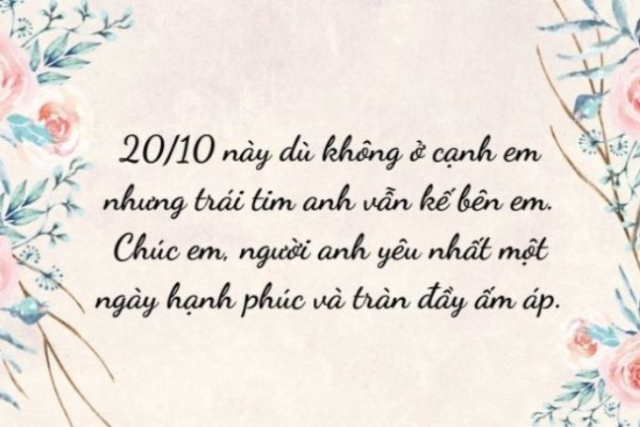 20/10 này dù không ở cạnh em
nhưng trái tim anh vẫn kế bên em.
Chúc em, người anh yêu nhất một
ngày hạnh phúc và tràn đầy ấm áp.